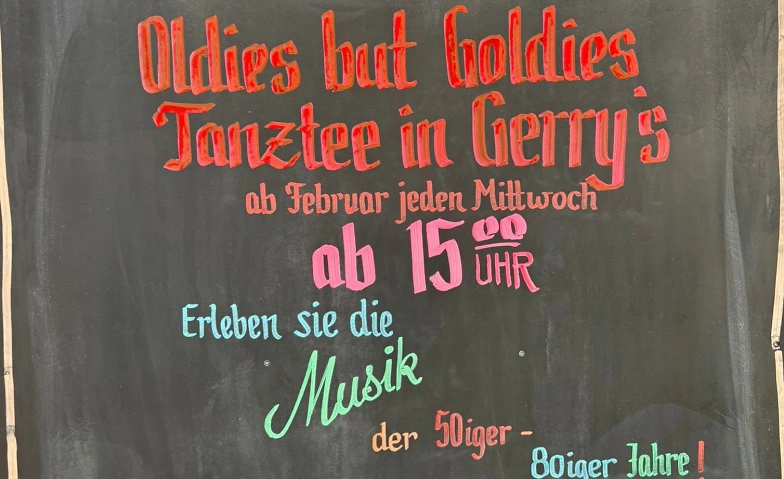 Oldies but Goldies
Tanztee in Gerry's
ab Februar jeden Mittwoch
ab 15 00 UHR
Erleben sie die
Musik
der 50iger -
80iger Jahre!